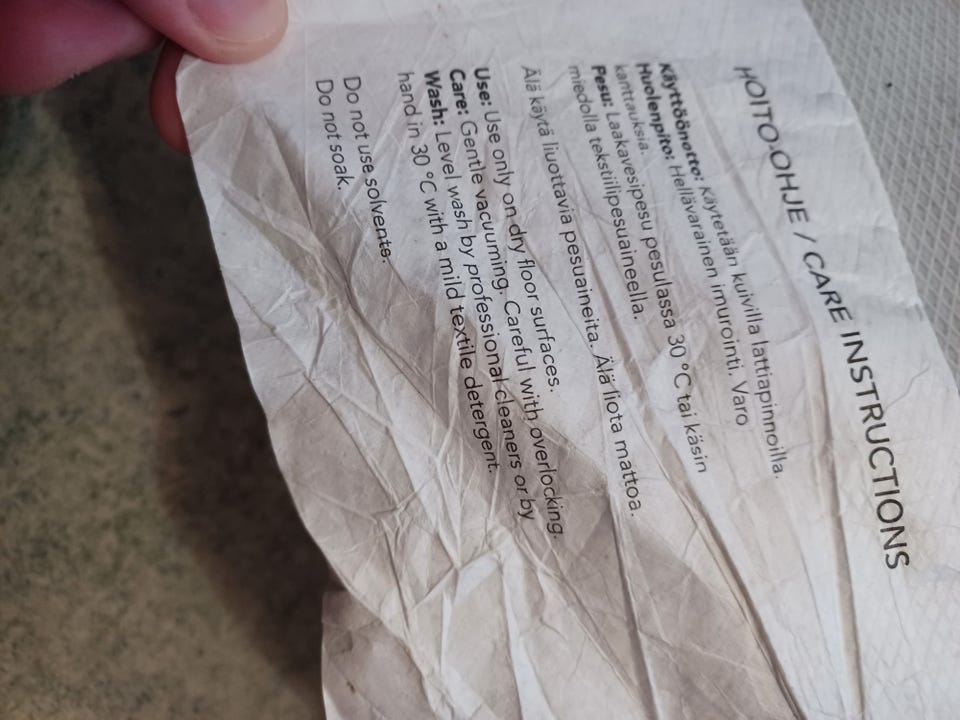 HOITO-OHJE / CARE INSTRUCTIONS
Käyttöönotto: Käytetään kuivilla lattiapinnoilla.
Huolenpito: Hellävarainen imurointi. Varo
kanttauksia.
Pesu: Laakavesipesu pesulassa 30 °C tai käsin
miedolla tekstiilipesuaineella.
Älä käytä liuottavia pesuaineita. Älä liota mattoa.
Use: Use only on dry floor surfaces.
Care: Gentle vacuuming. Careful with overlocking.
Wash: Level wash by professional cleaners or by
hand in 30 °C with a mild textile detergent.
Do not use solvents.
Do not soak.